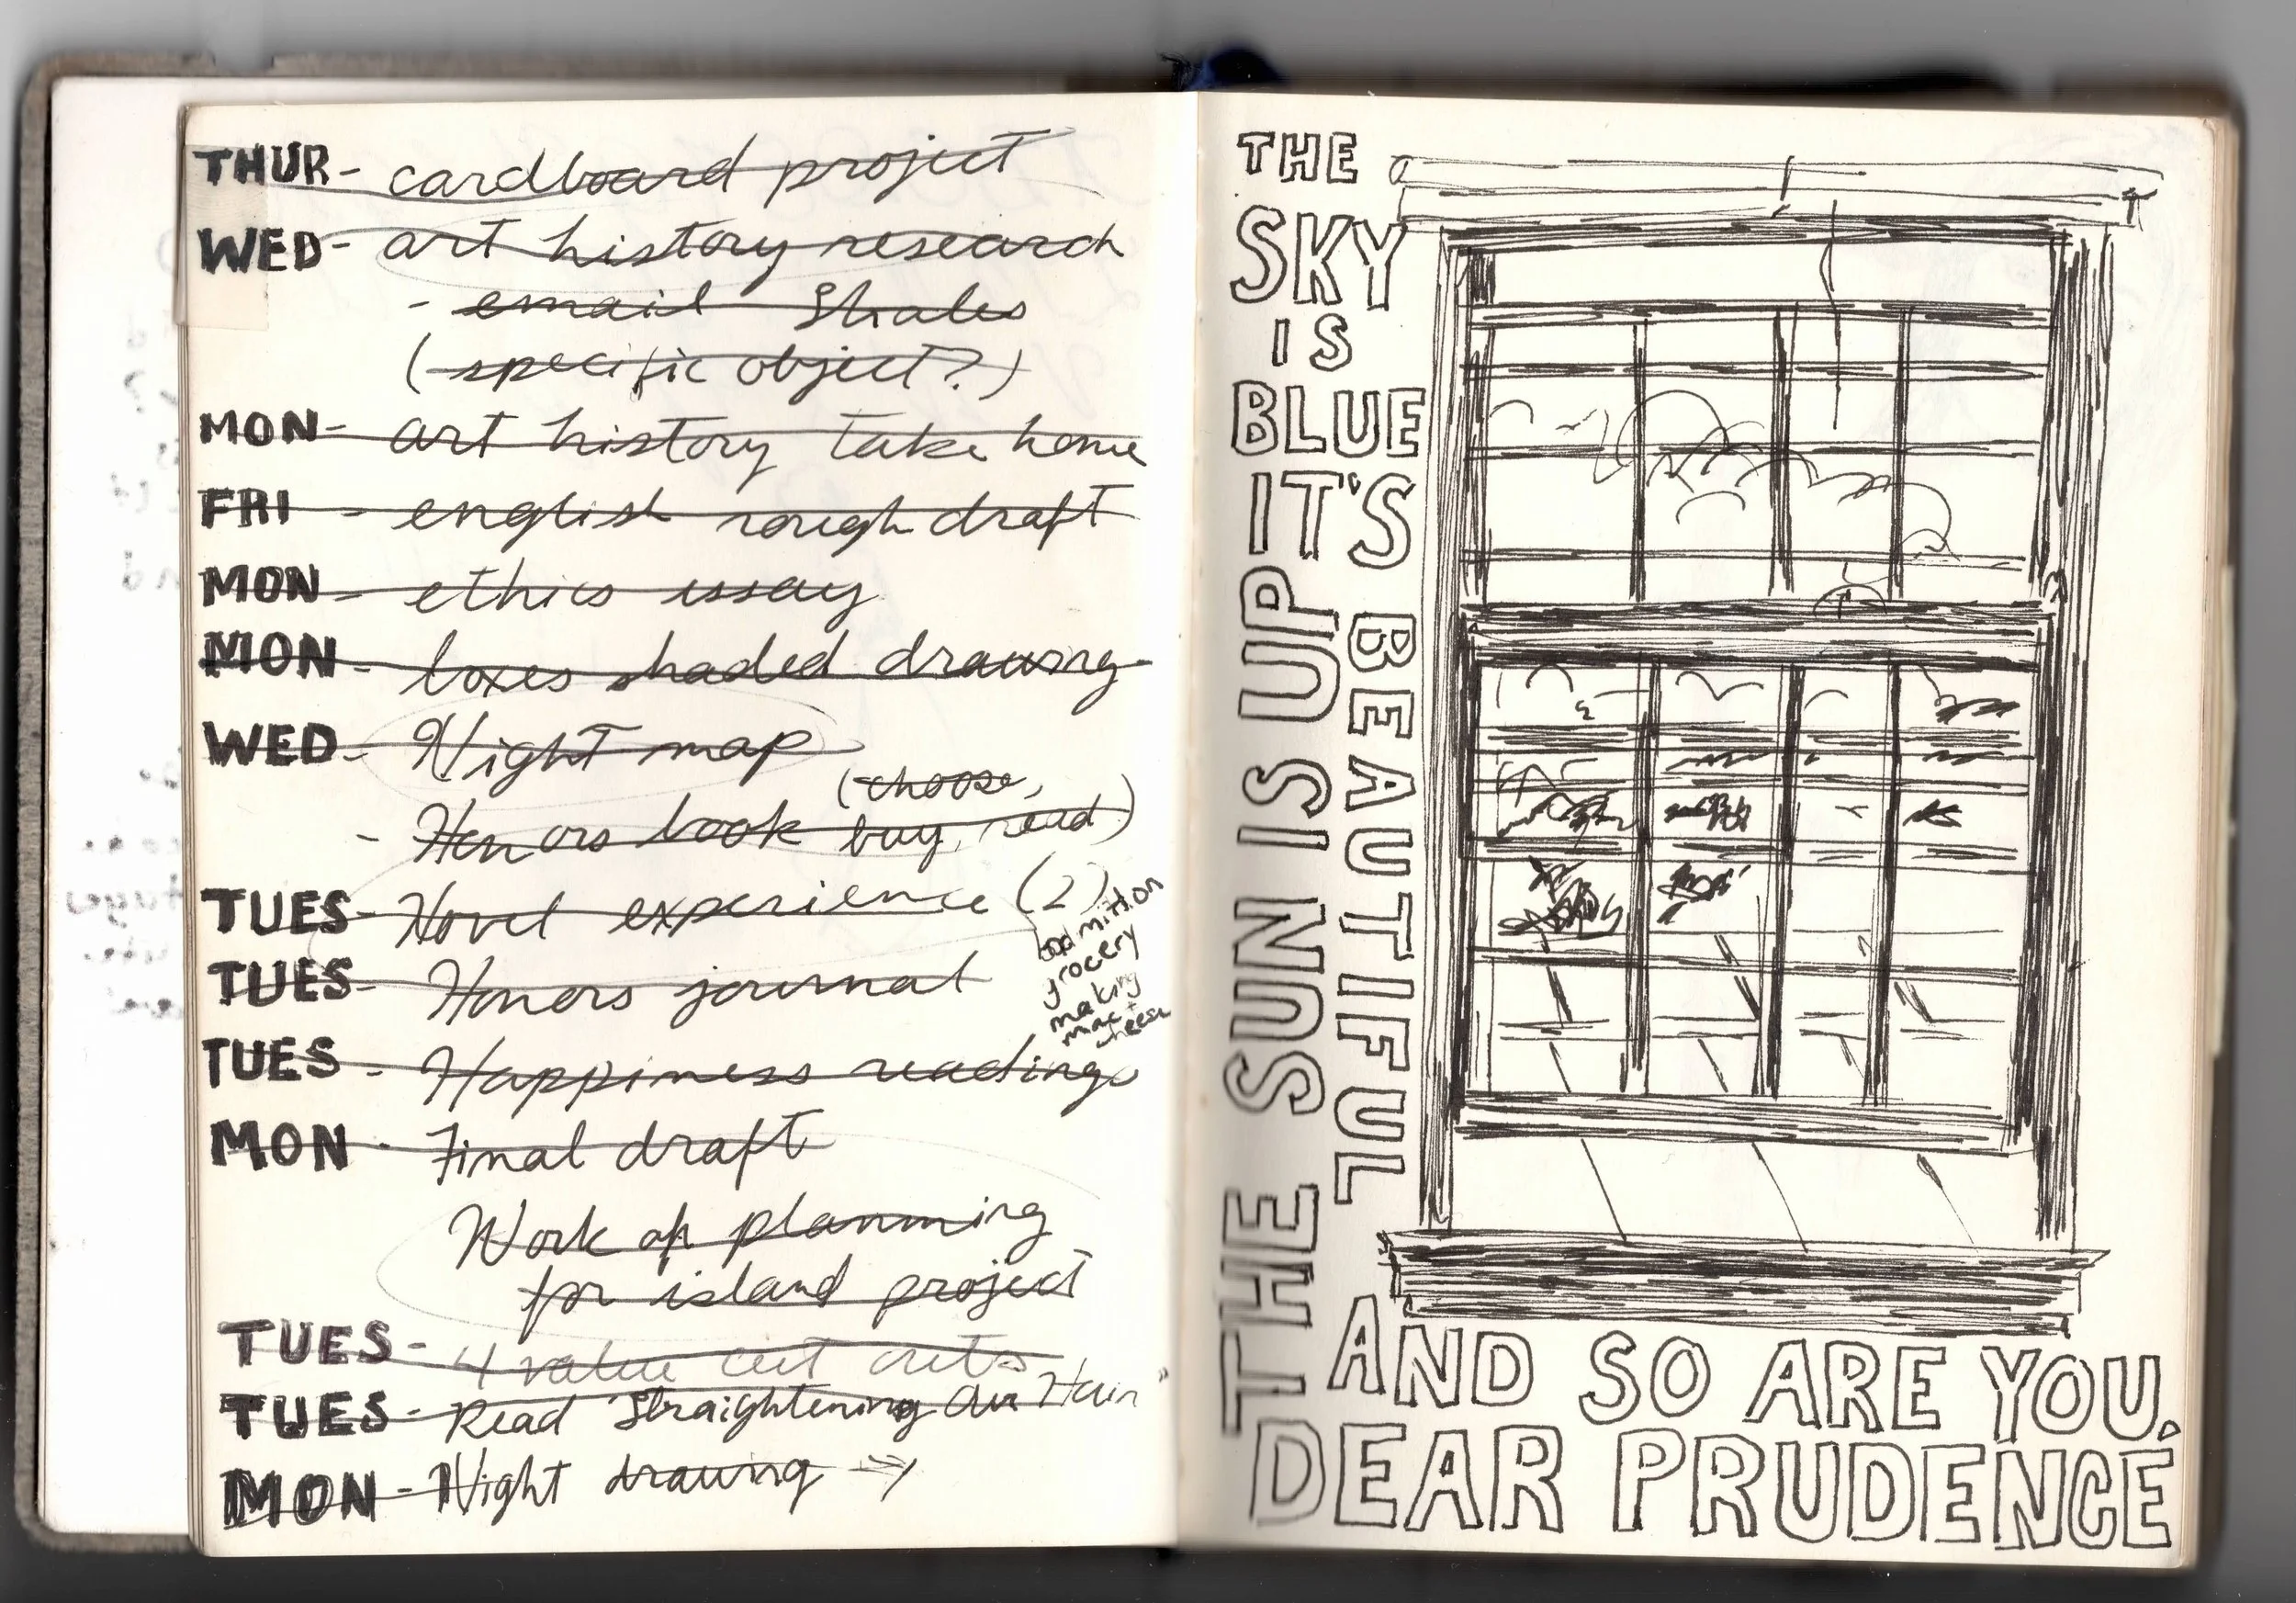 THUR- cardboard project
WED- art history research
- email Shales
(specific object?)
MON- art history take home
FRI - english rough draft
MON - ethics essay
MON - boxes shaded drawing
WED - Night map
- Honors book (choose,
buy, read)
TUES- Novel experience (2)
badmitton
grocery
making
mac +
cheese
TUES- Honors journal
TUES - Happiness readings
MON - Final draft
Work on planning
for island project
TUES- 4 value cut outs
TUES- Read "Straightening Our Hair"
MON - Night drawing →
THE
SKY
IS
BLUE
IT'S
BEAUTIFUL
THE SUN IS UP
AND SO ARE YOU.
DEAR PRUDENCE